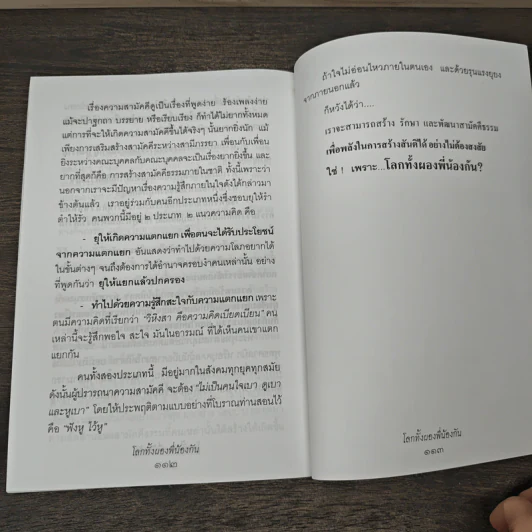 เรื่องความสามัคคีดูเป็นเรื่องที่พูดง่าย ร้องเพลงง่าย
แม้จะปาฐกถา บรรยาย หรือเรียบเรียง ก็ทำได้ไม่ยากทั้งหมด
แต่การที่จะให้เกิดความสามัคคีขึ้นได้จริงๆ นั้นยากยิ่งนัก แม้
เพียงการเสริมสร้างสามัคคีระหว่างสามีภรรยา เพื่อนกับเพื่อน
ยิ่งระหว่างคณะบุคคลกับคณะบุคคลจะเป็นเรื่องยากยิ่งขึ้น และ
ยากที่สุดก็คือ การสร้างสามัคคีธรรมภายในชาติ ทั้งนี้เพราะว่า
นอกจากเราจะมีปัญหาเรื่องความรู้สึกภายในใจดังได้กล่าวมา
ข้างต้นแล้ว เราอยู่ร่วมกับคนอีกประเภทหนึ่งซึ่งชอบยุให้รำ
ตำให้รั่ว คนพวกนี้มีอยู่ ๒ ประเภท ๒ แนวความคิด คือ
- ยุให้เกิดความแตกแยก เพื่อตนจะได้รับประโยชน์
จากความแตกแยก อันแสดงว่าทำไปด้วยความโลภอยากได้
ในชั้นต่างๆ จนถึงต้องการได้อำนาจครอบงำคนเหล่านั้น อย่าง
ที่พูดกันว่า ยุให้แยกแล้วปกครอง
- ทำไปด้วยความรู้สึกสะใจกับความแตกแยก เพราะ
ตนมีความคิดที่เรียกว่า "วิหิงสา คือความคิดเบียดเบียน" คน
เหล่านี้จะรู้สึกพอใจ สะใจ มันในอารมณ์ ที่ได้เห็นคนเขาแตก
แยกกัน
คนทั้งสองประเภทนี้ มีอยู่มากในสังคมทุกยุคทุกสมัย
ดังนั้นผู้ปรารถนาความสามัคคี จะต้อง "ไม่เป็นคนใจเบา หูเบา
และหูเบา" โดยให้ประพฤติตามแบบอย่างที่โบราณท่านสอนไว้
คือ "ฟังหู ไว้หู"
โลกทั้งผองพี่น้องกัน
๑๑๒
ถ้าใจไม่อ่อนไหวภายในตนเอง และด้วยรุนแรงยุยง
จากภายนอกแล้ว
ก็หวังได้ว่า....
เราจะสามารถสร้าง รักษา และพัฒนาสามัคคีธรรม
เพื่อพลังในการสร้างสันติได้ อย่างไม่ต้องสงสัย
ใช่ ! เพราะ...โลกทั้งผองพี่น้องกัน?
โลกทั้งผองพี่น้องกัน
๑๑๓